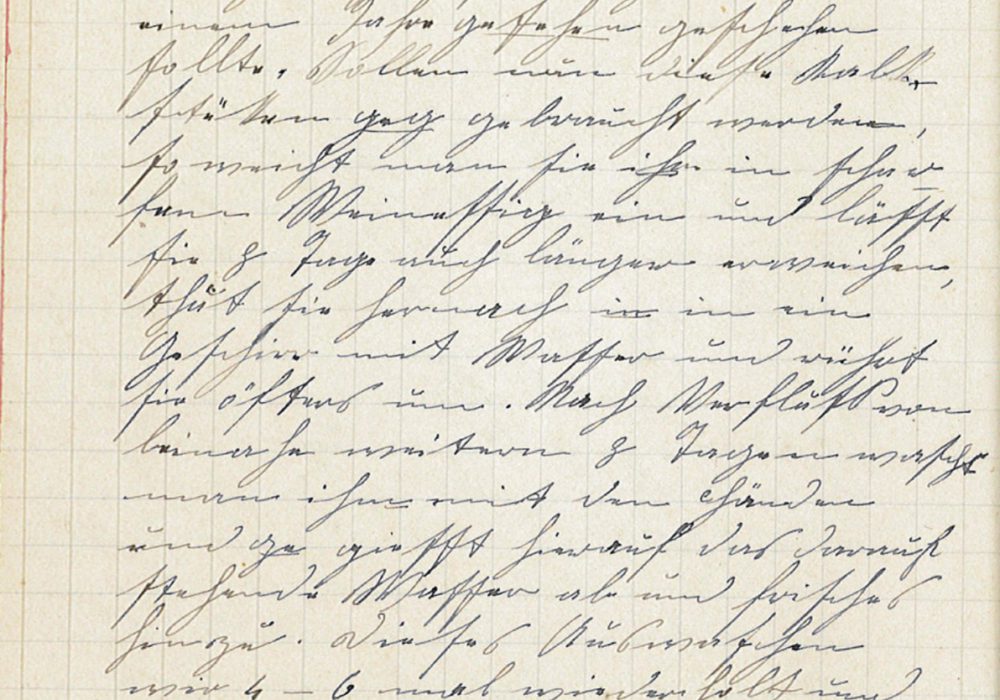 einem Jahr gesehen geschehen
sollte. Sollen nun diese Kalk
stüken geg gebraucht werden,
so weicht man sie ihr in schar
fem Weinessig ein und lässt
sie 8 Tage auch länger erweichen,
thut sie hernach in in ein
Geschirr mit Wasser und rührt
sie öfters um. Nach Verfluss von
beinahe weitern 8 Tagen wascht
man ihm mit den Händen
und ge giesst hierauf das darauf
stehende Wasser ab und frisches
hinzu. Dieses Auswaschen
wir 4 – 6 mal wiederholt und